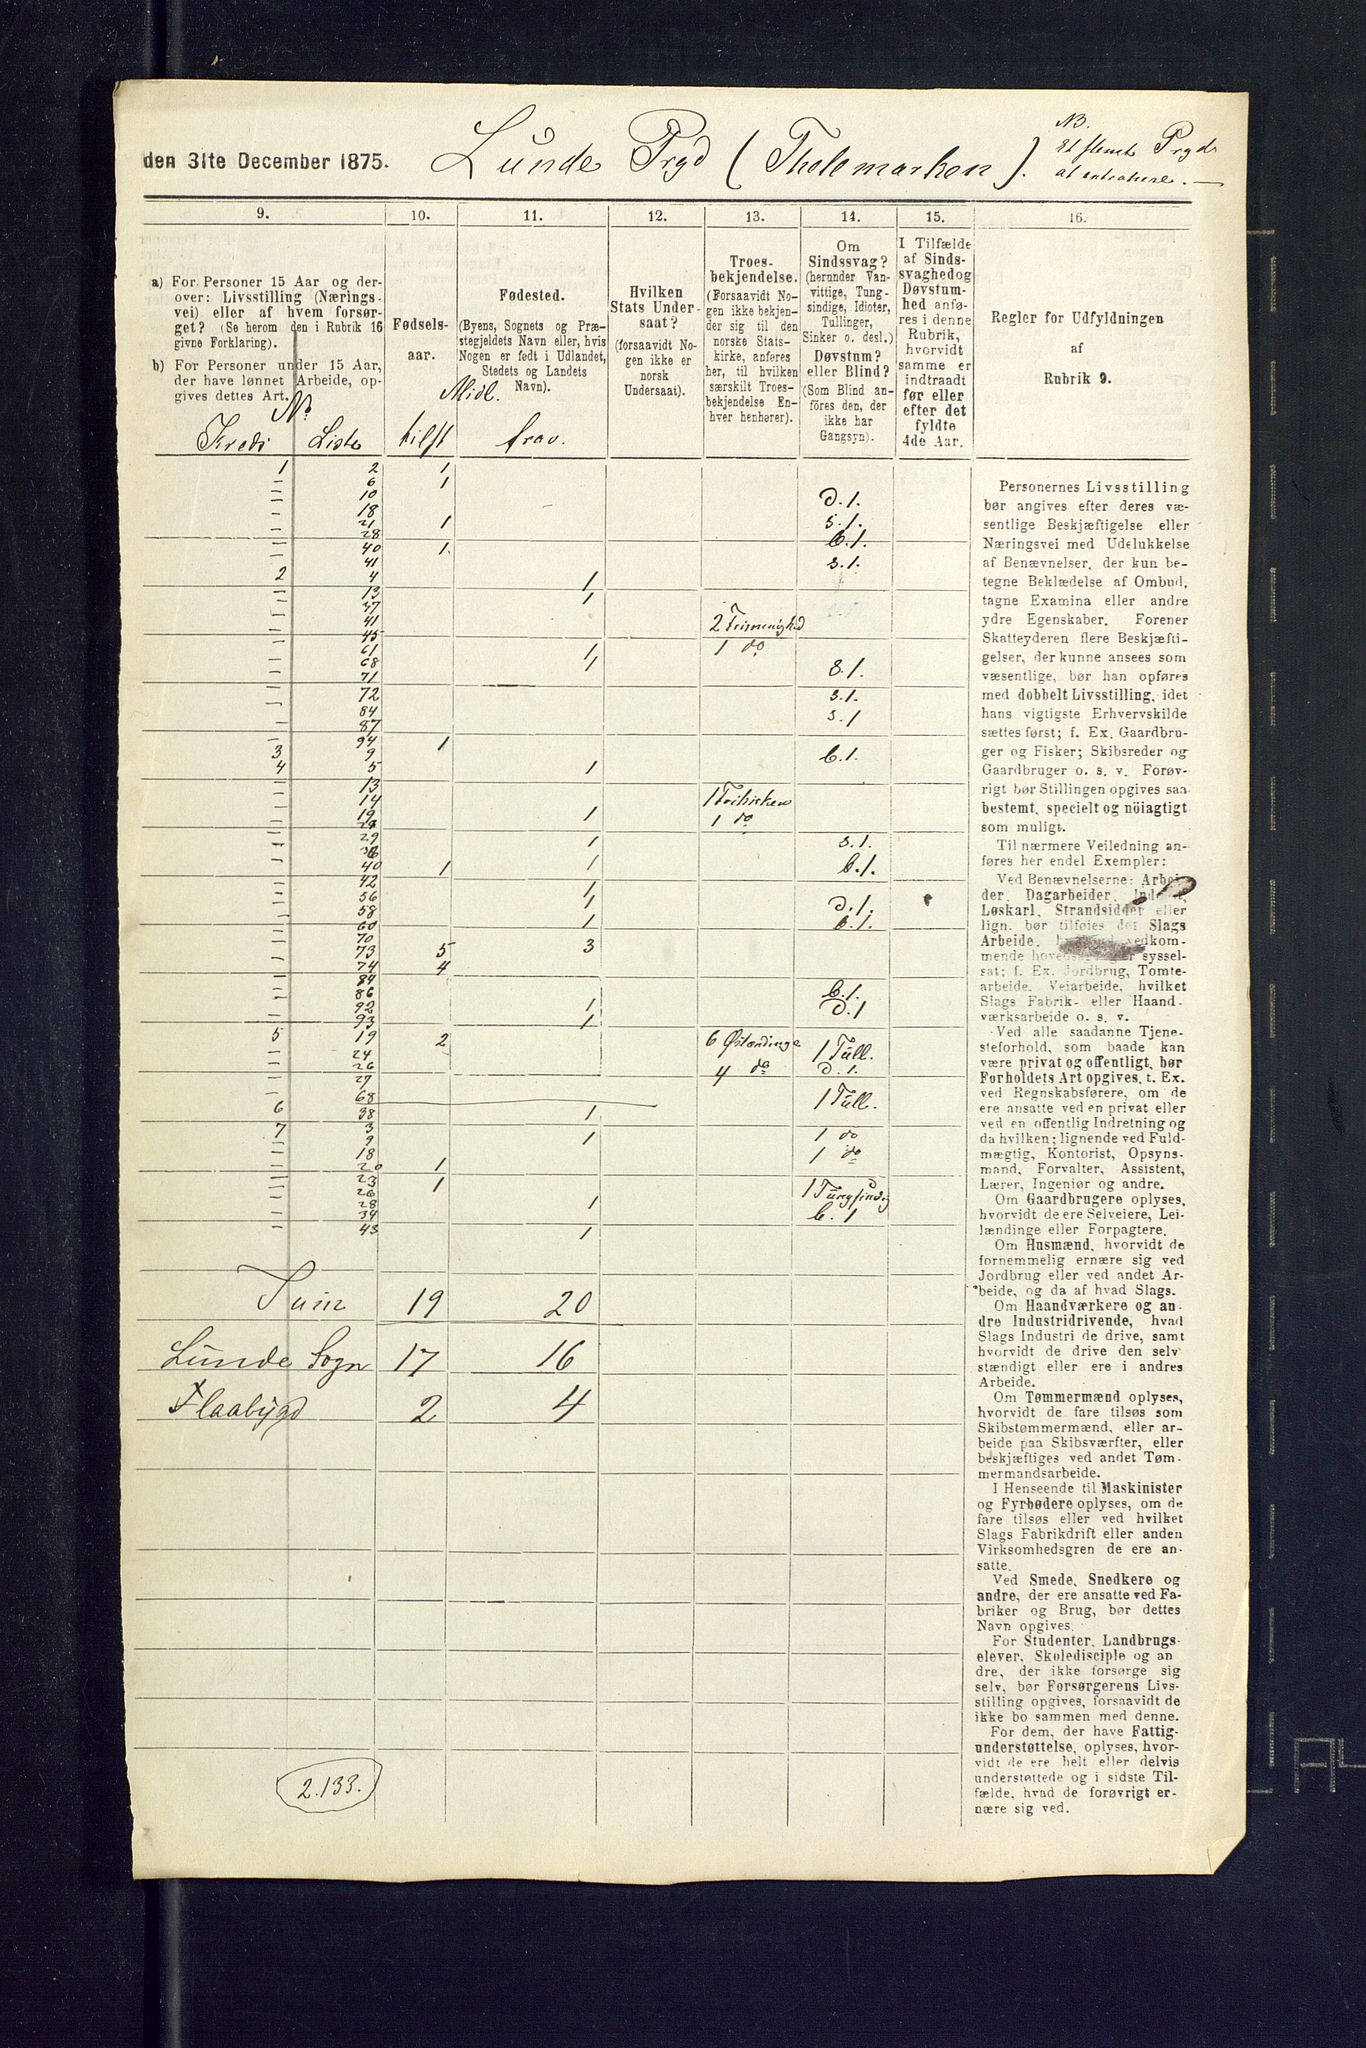 den 31te December 1875. Lunde Prgd (Thelemarken).
NB.
at
9. 10. 11. 12. 13. 14. 15. 16.
a) For Personer 15 Aar og der-
over: Livsstilling (Nærings-
vei) eller af hvem forsør-
get? (Se herom den i Rubrik 16
givne Forklaring).
b) For Personer under 15 Aar,
der have lønnet Arbeide, op-
gives dettes Art.
Fødsels-
aar.
Fødested.
(Byens, Sognets og Præ-
stegjeldets Navn eller, hvis
Nogen er født i Udlandet,
Stedets og Landets
Navn).
Hvilken
Stats Under-
saat?
(forsaavidt No-
gen ikke er
norsk
Undersaat).
Troes-
bekjendelse.
(Forsaavidt No-
gen ikke bekjen-
der sig til den
norske Stats-
kirke, anføres
her, til hvilken
særskilt Troes-
bekjendelse En-
hver henhører).
Om
Sindssvag?
(herunder Van-
vittige, Tung-
sindige, Idioter,
Tullinger,
Sinker o. desl.)
Døvstum?
eller Blind?
(Som Blind an-
føres den, der
ikke har
Gangsyn).
I Tilfælde
af Sinds-
svaghed og
Døvstum-
hed anfø-
res i denne
Rubrik,
hvorvidt
samme er
indtraadt
før eller
efter det
fyldte
4de Aar.
Regler for Udfyldningen
af
Rubrik 9.
No
Midl.
Kreds Liste tilst frav.
1 2 1
— 6 1
— 10 d. 1.
— 18 s. 1.
— 21 1
— 28 b. 1.
— 40 1.
— 41 s. 1.
2 4 1
— 13 1
— 37
— 41 2
— 45 1 do
— 61 1
— 68 1
— 71 s. 1.
— 72 s. 1.
— 84 s. 1
— 87
— 94 1
3 9 b. 1.
4 5 1
— 13
— 14 1
— 19 1 1 do
— 29 1 s. 1.
— 40 1 1 b. 1.
— 42 1
— 56 1 d. 1.
— 58
— 60 1 b. 1.
— 70
— 73 5 3
— 74 4
— 84
— 86 b. 1.
— 92 1 d. 1
— 93 1
5 19 2 6
— 24 1 Tull.
— 26 4 do d. 1.
— 27
— 68 1 Tull.
6 38 1
7 3
— 9 1 1 do
— 18 1 do
— 20 1
— 23 1
— 26 1 Tungsindig
— 28 1
— 34 b. 1
— 43 1
19 20
Lunde Sogn 17 16
Flaabygd 2 4
2.133.
Personernes Livsstilling
bør angives efter deres væ-
sentlige Beskjæftigelse eller
Næringsvei med Udelukkelse
af Benævnelser, der kun be-
tegne Beklædelse af Ombud,
tagne Examina eller andre
ydre Egenskaber. Forener
Skatteyderen flere Beskjæfti-
gelser, der kunne ansees som
væsentlige, bør han opføres
med dobbelt Livsstilling, idet
hans vigtigste Erhvervskilde
sættes først; f. Ex. Gaardbru-
ger og Fisker; Skibsreder og
Gaardbruger o. s. v. Forøv-
rigt bør Stillingen opgives saa
bestemt, specielt og nöiagtigt
som muligt.
Til nærmere Veiledning an-
føres her endel Exempler:
Ved Benævnelserne: Arbei-
der, Dagarbeider,
Løskarl, Strandsidder eller
lign. bør tilføies det Slags
Arbeide, vedkom-
mende syssel-
sat; f. Ex. Jordbrug, Tomte-
arbeide, Veiarbeide, hvilket
Slags Fabrik- eller Haand-
værksarbeide o. s. v.
Ved alle saadanne Tjene-
steforhold, som baade kan
være privat og offentligt, bør
Forholdets Art opgives, t. Ex.
ved Regnskabsførere, om de
ere ansatte ved en privat eller
ved en offentlig Indretning og
da hvilken; lignende ved Fuld-
mægtig, Kontorist, Opsyns-
mand, Forvalter, Assistent,
Lærer, Ingeniør og andre.
Om Gaardbrugere oplyses,
hvorvidt de ere Selveiere, Lei-
lændinge eller Forpagtere.
Om Husmænd, hvorvidt de
fornemmelig ernære sig ved
Jordbrug eller ved andet Ar-
beide, og da af hvad Slags.
Om Haandværkere og an-
dre Industridrivende, hvad
Slags Industri de drive, samt
hvorvidt de drive den selv-
stændigt eller ere i andres
Arbeide.
Om Tømmermænd oplyses,
hvorvidt de fare tilsøs som
Skibstømmermænd, eller ar-
beide paa Skibsværfter, eller
beskjæftiges ved andet Tøm-
mermandsarbeide.
I Henseende til Maskinister
og Fyrbødere oplyses, om de
fare tilsøs eller ved hvilket
Slags Fabrikdrift eller anden
Virksomhedsgren de ere an-
satte.
Ved Smede, Snedkere og
andre, der ere ansatte ved Fa-
briker og Brug, bør dettes
Navn opgives.
For Studenter, Landbrugs-
elever, Skoledisciple og an-
dre, der ikke forsørge sig
selv, bør Forsørgerens Livs-
stilling opgives, forsaavidt de
ikke bo sammen med denne.
For dem, der have Fattig-
understøttelse, oplyses, hvor-
vidt de ere helt eller delvis
understøttede og i sidste Til-
fælde, hvad de forøvrigt er-
nære sig ved.